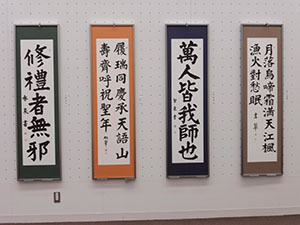 修禮者無邪
履瑞同慶承天語山
壽齊呼祝聖年
萬人皆我師也
月落烏啼霜滿天江楓
漁火對愁眠